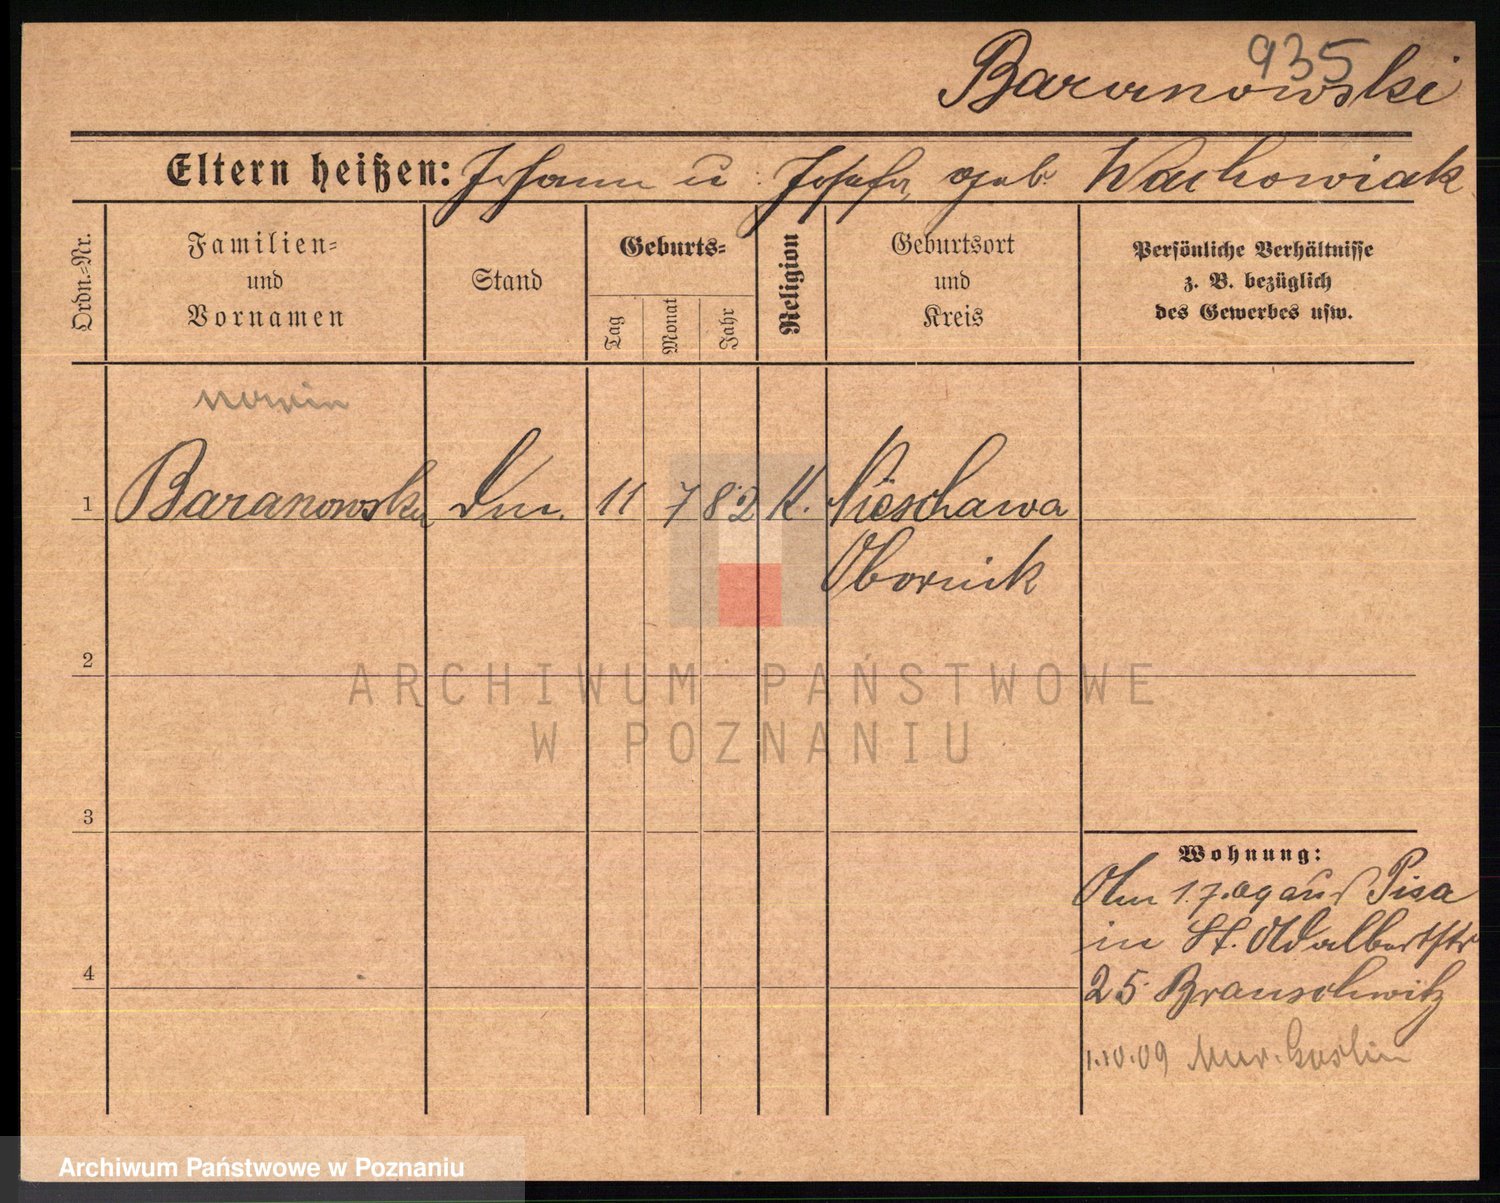 935
Baranowski
Eltern heißen: Johann u. Josefa, geb. Wachowiak
Ordn.-Nr.
Familien-
und
Vornamen
Stand
Geburts-
Tag
Monat
Jahr
Religion
Geburtsort
und
Kreis
Persönliche Verhältnisse
z. B. bezüglich
des Gewerbes usw.
1 Baranowska 11 7 82 K. Nieschawa
Obornik
2
ARCHIWUM PAŃSTWOWE
W POZNANIU
3
Wohnung:
1.7.09 aus Pisa
in St. Adalbertstr
4
25 Branschwitz
1.10.09 Mur. Goslin
Archiwum Państwowe w Poznaniu